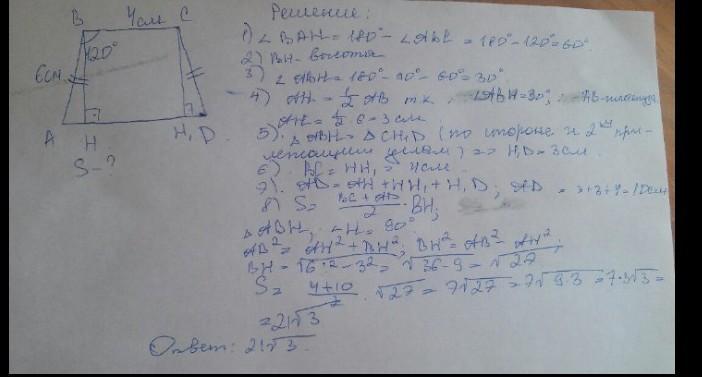 B 4см C
Решение:
120°
6см
A H H₁ D
S-?
1) ∠BAH = 180° - ∠ABC = 180° - 120° = 60°
2) BH - высота
3) ∠ABH = 180° - 90° - 60° = 30°
4) AH = 1/2 AB т.к. ∠ABH = 30°, AB - гипотенуза
AH = 1/2 · 6 = 3 см
5) △ABH = △CH₁D (по стороне и 2ум при-
лежащим углам) => H₁D = 3см
6) BC = HH₁ = 4см
7) AD = AH + HH₁ + H₁D; AD = 3+3+4 = 10см
8) S = (BC + AD)/2 · BH;
△ABH, ∠H = 90°
AB² = AH² + BH²; BH² = AB² - AH²;
BH = √6^2 - 3² = √36-9 = √27
S = (4+10)/2 · √27 = 7√27 = 7√9·3 = 7·3√3 =
= 21√3
Ответ: 21√3.